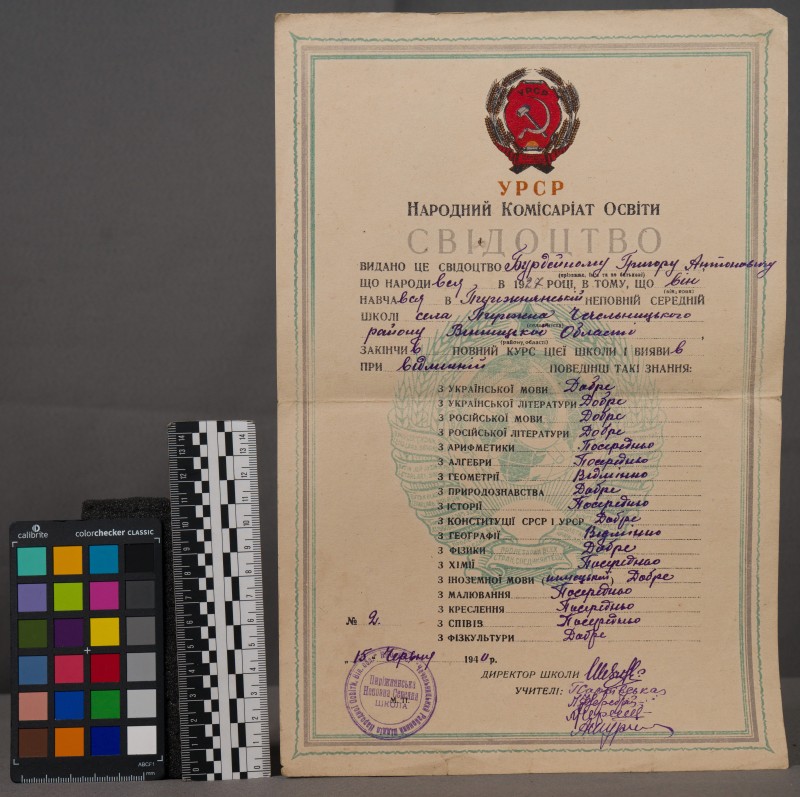 УРСР
УРСР
НАРОДНИЙ КОМІСАРІАТ ОСВІТИ
СВІДОЦТВО
ВИДАНО ЦЕ СВІДОЦТВО Бурдейному Григору Антоновичу
(прізвище, ім'я та по батькові)
ЩО НАРОДИвся, В 1927 РОЦІ, В ТОМУ, ЩО він
(він, вона)
НАВЧАвся В НЕПОВНІЙ СЕРЕДНІЙ
ШКОЛІ села Чечельницького
району Вінницької Області
(району, області)
ЗАКІНЧИв ПОВНИЙ КУРС ЦІЄЇ ШКОЛИ І ВИЯВИв
ПРИ відмінній ПОВЕДІНЦІ ТАКІ ЗНАННЯ:
З УКРАЇНСЬКОЇ МОВИ Добре
З УКРАЇНСЬКОЇ ЛІТЕРАТУРИ Добре
З РОСІЙСЬКОЇ МОВИ Добре
З РОСІЙСЬКОЇ ЛІТЕРАТУРИ Добре
З АРИФМЕТИКИ Посередньо
З АЛГЕБРИ Посередньо
З ГЕОМЕТРІЇ Відмінно
З ПРИРОДОЗНАВСТВА Добре
З ІСТОРІЇ Посередньо
З КОНСТИТУЦІЇ СРСР І УРСР Добре
З ГЕОГРАФІЇ Відмінно
З ФІЗИКИ Добре
З ХІМІЇ Посередньо
З ІНОЗЕМНОЇ МОВИ (німецької) Добре
З МАЛЮВАННЯ Посередньо
З КРЕСЛЕННЯ Посередньо
З СПІВІВ Посередньо
З ФІЗКУЛЬТУРИ Добре
№ 2.
„15" Червня 1940 р.
ДИРЕКТОР ШКОЛИ
УЧИТЕЛІ:
М. П.
ШКОЛА
calibrite
colorchecker CLASSIC
mm